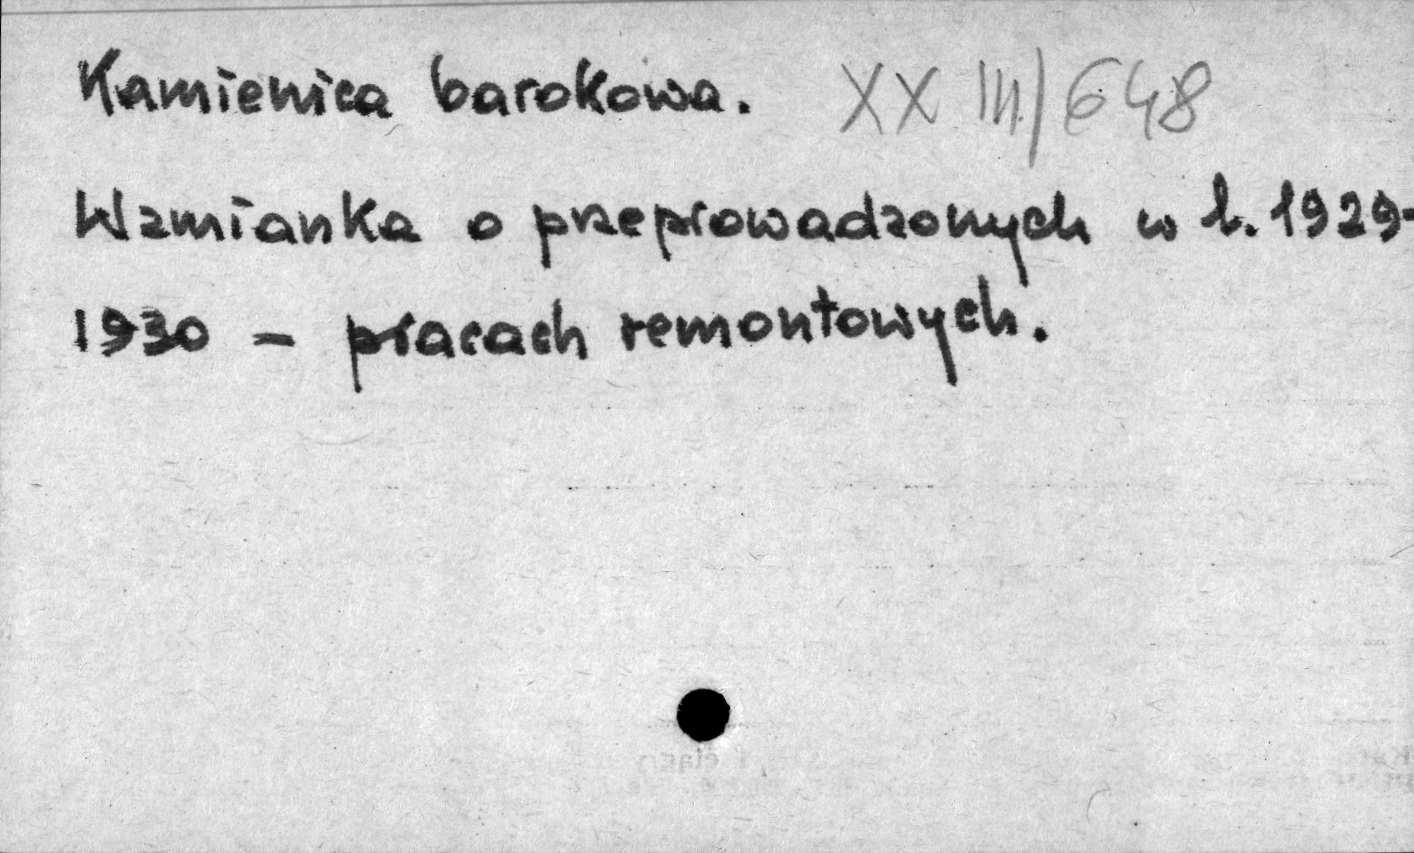 Kamienica barokowa. XX III/648
Wzmianka o przeprowadzonych w l. 1929-
1930 - pracach remontowych.